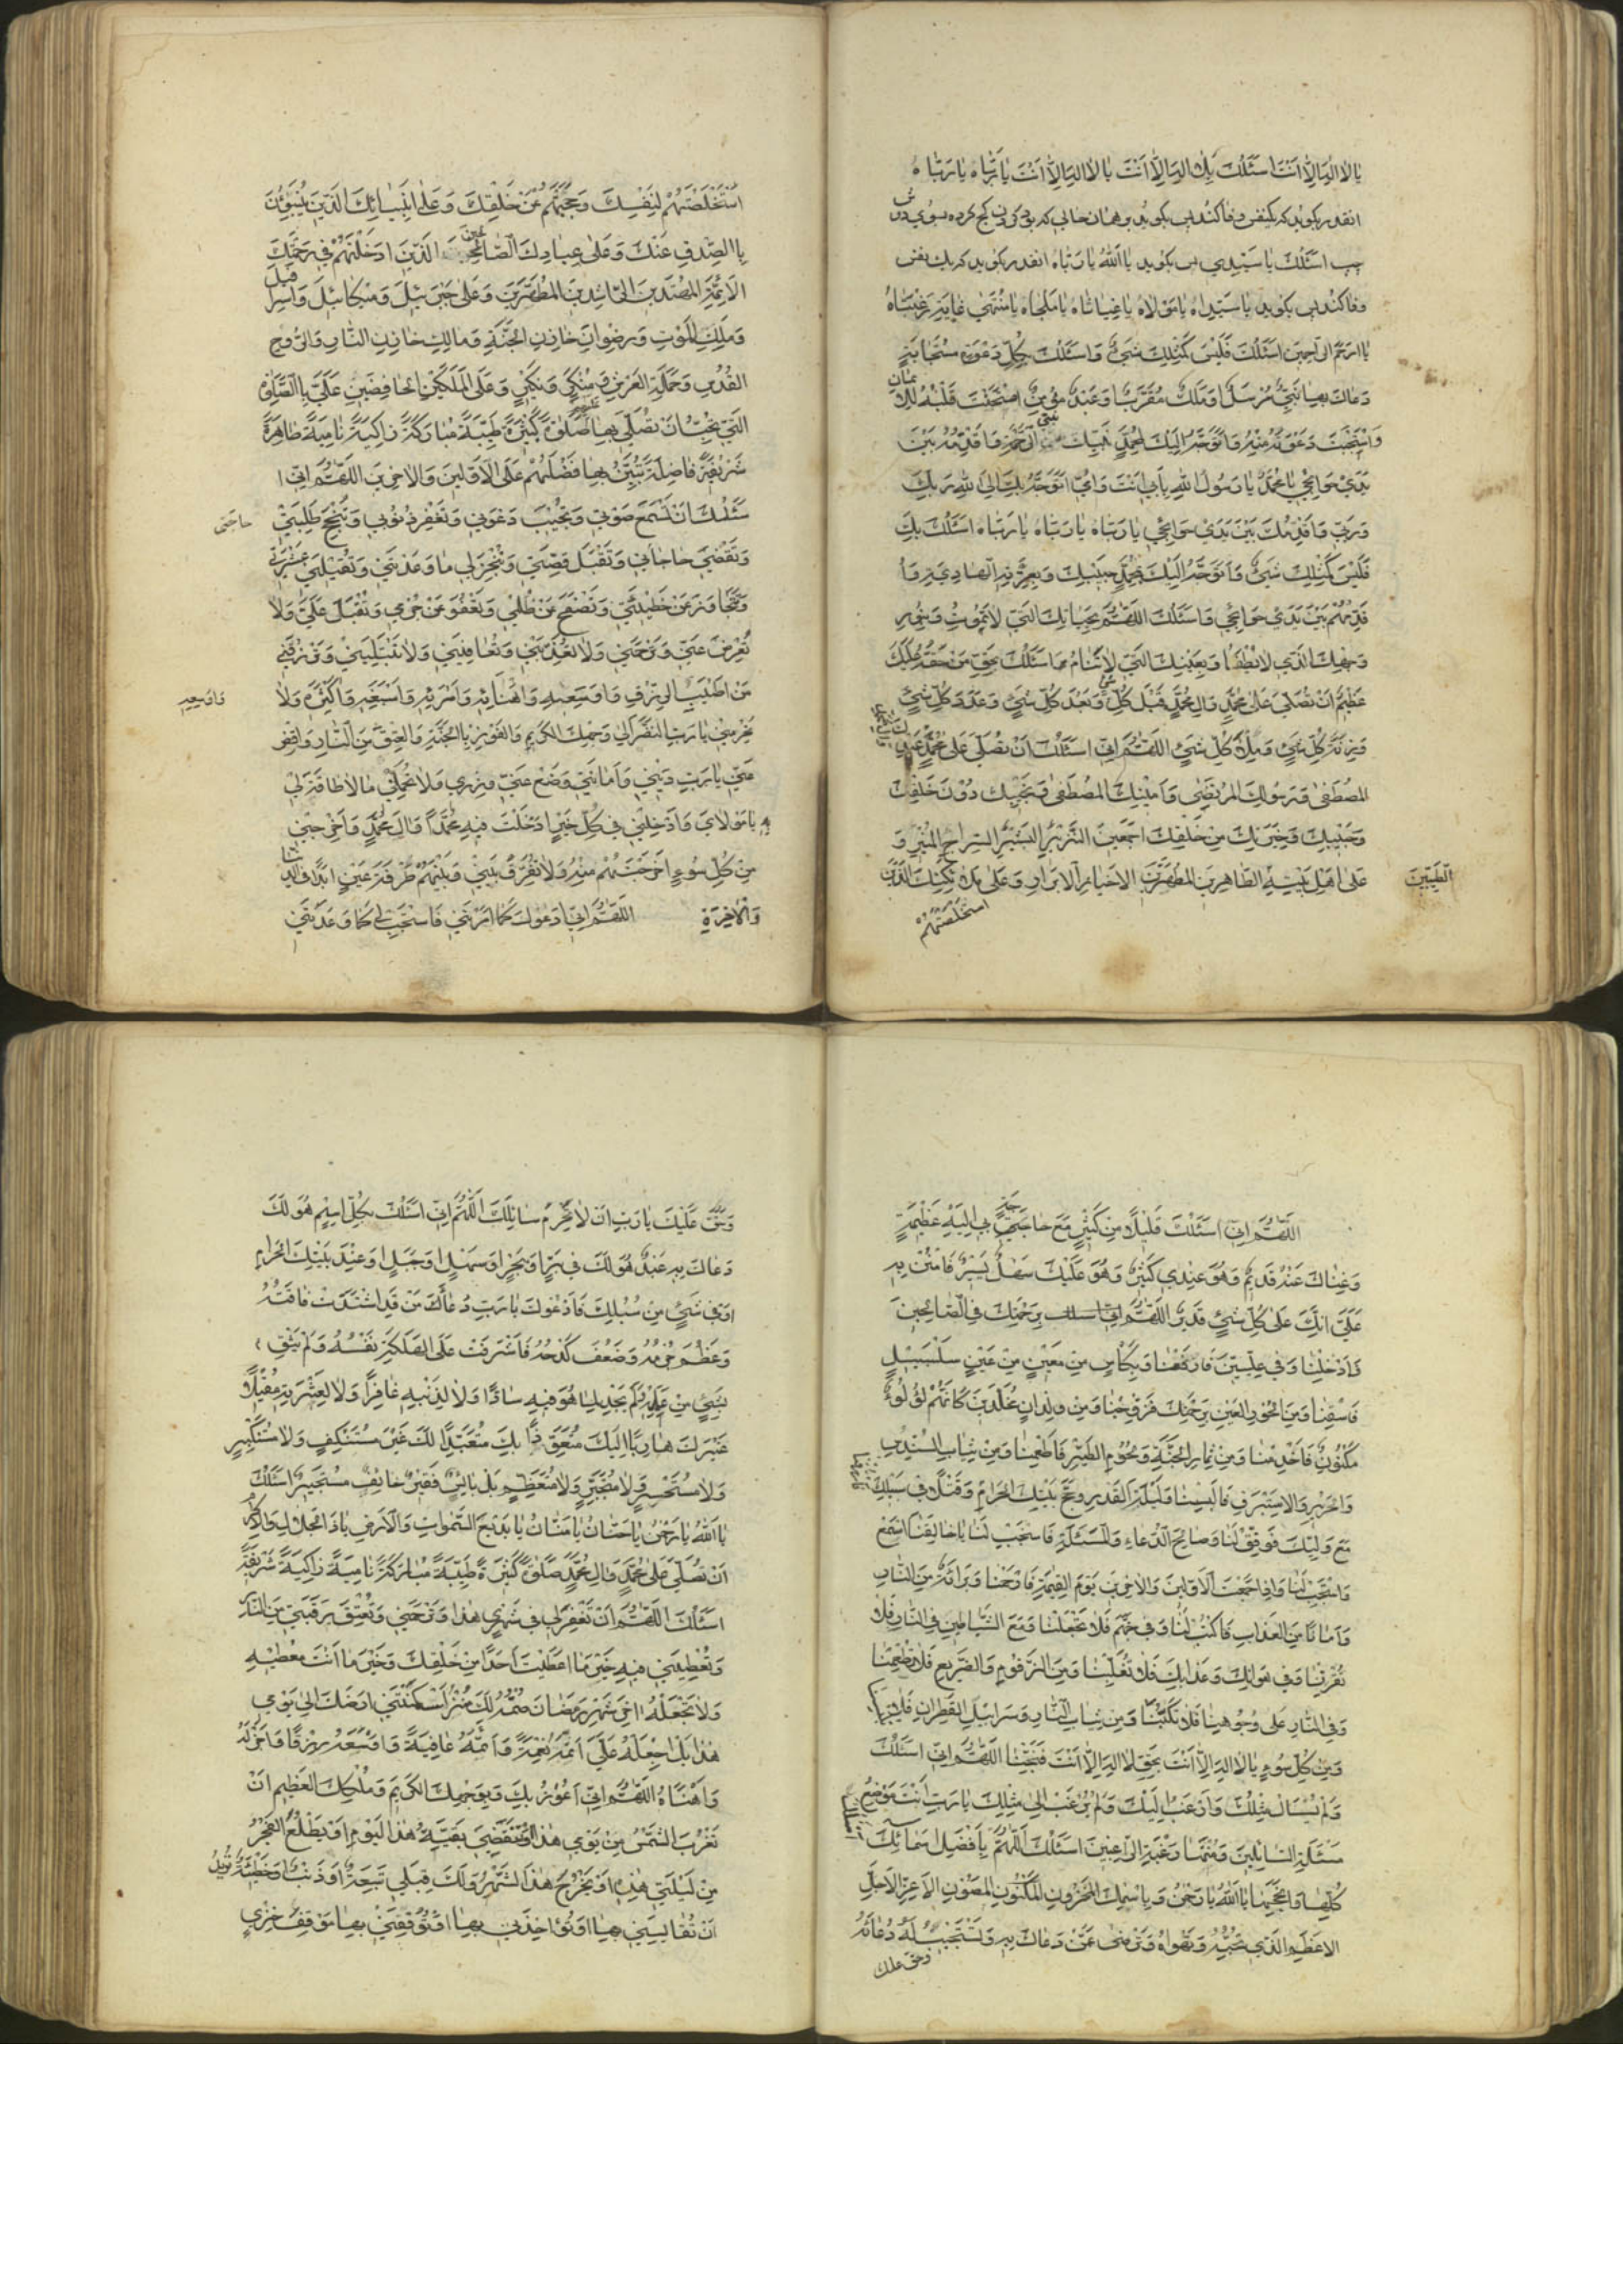 يا لا اله الا انت اسئلك بلا اله الا انت يا لا اله الا انت يا ربّاه يا ربّاه
انقدر بكويد كه يكنفس وفا كند پس بكويد بر همان حالى كه بود كردن كج كرده بسوى دوش
چپ اسئلك يا سيّدي پس بكويد يا الله يا ربّاه انقدر بكويد كه يك نفس
وفا كند پس بكويد يا سيّداه يا مولاه يا غياثاه يا ملجاه يا منتهى غاية رغبتاه
يا ارحم الراحمين اسئلك فليس كمثلك شيء واسئلك بكل دعوة مستجابة
دعاك بها نبيّ مرسل او ملك مقرّب او عبد مؤمن امتحنت قلبه للايمان
واستجبت دعوته منه واتوجّه اليك بمحمد نبيّك نبيّ الرحمة واقدّمه بين
يدي حوائجي يا محمّد يا رسول الله بابي انت وامّي اتوجّه بك الى الله ربّك
وربّي واقدّمك بين يدي حوائجي يا ربّاه يا ربّاه يا ربّاه اسئلك بك
فليس كمثلك شيء واتوجّه اليك بمحمّد حبيبك وبعترته الهادية وا
قدّمهم بين يدي حوائجي واسئلك اللهمّ بحياتك التي لا تموت وبنور
وجهك الذي لا يطفا وبعينك التي لا تنام مما اسئلك بحق من حقه عليك
عظيم ان تصلّي على محمد وال محمد قبل كل شيء وبعد كل شيء وعدد كل شيء
وزنة كل شيء وملأ كل شيء اللهمّ انّي اسئلك ان تصلّي على محمد عبدك
المصطفى ورسولك المرتضى وامينك المصطفى ونجيبك دون خلقك
وحبيبك وخيرتك من خلقك اجمعين النذير البشير السراج المنير و
على اهل بيته الطاهرين المطهرين الاخيار الابرار وعلى ملائكتك الذين
الطيّبين
استخلصتهم
استخلصتهم لنفسك وحجبتهم عن خلقك وعلى انبيائك الذين ينبئون
بالصدق عنك وعلى عبادك الصالحين الذين ادخلتهم في رحمتك
الائمة المهتدين الراشدين المطهرين وعلى جبرئيل وميكائيل واسرافيل
وملك الموت ورضوان خازن الجنة ومالك خازن النار والروح
القدس وحملة العرش ومنكر ونكير وعلى الملكين الحافظين عليّ بالصلوة
التي تحبّ ان تصلّي بها عليهم صلوة كثيرة طيبة مباركة زاكية نامية طاهرة
شريفة فاضلة تبيّن بها فضلهم على الاولين والاخرين اللهمّ اني ا
سئلك ان تسمع صوتي وتجيب دعوتي وتغفر ذنوبي وتنجح طلبتي
حاجتى
وتقضي حاجاتي وتقبل قصتي وتنجز لي ما وعدتني وتقيلني عثرتي
وتتجاوز عن خطيئتي وتصفح عن ظلمي وتعفو عن جرمي وتقبل عليّ ولا
تعرض عنّي وترحمني ولا تعذبني وتعافيني ولا تبتليني وترزقني
من اطيب الرزق واوسعه واهنائه وامرئه واسبغه واكثره ولا
واوسعه
تحرمني يا ربّ النظر الى وجهك الكريم والفوز بالجنة والعتق من النار واقض
عني يا ربّ ديني وامانتي وضع عني وزري ولا تحملني ما لا طاقة لي
به يا مولاي وادخلني في كل خير ادخلت فيه محمدا وال محمد واخرجني
من كل سوء اخرجتهم منه ولا تفرق بيني وبينهم طرفة عين ابدا في الدنيا
والاخرة اللهمّ اني ادعوك كما امرتني فاستجب لي كما وعدتني
اللهمّ اني اسئلك قليلا من كثير مع حاجة بي اليه عظيمة
وغناك عنه قديم وهو عندي كثير وهو عليك سهل يسير فامنن به
عليّ انك على كل شيء قدير اللهمّ اني اسئلك برحمتك في الصالحين
فادخلنا وفي علّيّين فارفعنا وبكاس من معين من عين سلسبيل
فاسقنا ومن الحور العين برحمتك فزوجنا ومن ولدان مخلّدين كانهم لؤلؤ
مكنون فاخدمنا ومن ثمار الجنة ولحوم الطير فاطعمنا ومن ثياب السندس
والحرير والاستبرق فالبسنا وليلة القدر وحج بيتك الحرام وقتلا في سبيلك
مع وليك فوفّق لنا وصالح الدعاء والمسئلة فاستجب لنا يا خالقنا اسمع
واستجب لنا واذا جمعت الاولين والاخرين يوم القيمة فارحمنا وبراءة من النار
وامانا من العذاب فاكتب لنا وفي جهنم فلا تجعلنا ومع الشياطين في النار فلا
تقرنا وفي هوانك وعذابك فلا تقلبنا ومن الزقوم والضريع فلا تطعمنا
وفي النار على وجوهنا فلا تكببنا ومن ثياب النار وسرابيل القطران فلا تلبسنا
ومن كل سوء يا لا اله الا انت بحق لا اله الا انت فنجّنا اللهمّ اني اسئلك
ولم يسال مثلك وارغب اليك ولم يرغب الى مثلك يا رب انت موضع
مسئلة السائلين ومنتهى رغبة الراغبين اسئلك اللهم بافضل اسمائك
كلها وانجحها يا الله يا رحمن وباسمك المخزون المكنون المصون الاعز الاجل
الاعظم الذي تحبّه وتهواه وترضى عمّن دعاك به وتستجيب له دعائه
وحق عليك
وحق عليك يا رب ان لا تحرم سائلك اللهمّ اني اسئلك بكل اسم هو لك
دعاك به عبد هو لك في بر او بحر او سهل او جبل او عند بيتك الحرام
او في شيء من سبلك فادعوك يا رب دعاء من قد اشتدت فاقته
وعظم جرمه وضعف كدحه فاشرفت على الهلكة نفسه ولم يثق
بشيء من عمله ولم يجد لما هو فيه سادّا ولا لذنبه غافرا ولا لعثرته مقيلا
غيرك هاربا اليك متعوّذا بك متعبّدا لك غير مستنكف ولا مستكبر
ولا مستحسر ولا متجبر ولا متعظم بل بائس فقير خائف مستجير اسئلك
يا الله يا رحمن يا حنان يا منان يا بديع السموات والارض يا ذا الجلال والاكرام
ان تصلي على محمد وال محمد صلوة كثيرة طيبة مباركة نامية زاكية شريفة
اسئلك اللهمّ ان تغفر لي في شهري هذا وترحمني وتعتق رقبتي من النار
وتعطيني فيه خير ما اعطيت احدا من خلقك وخير ما انت معطيه
ولا تجعله اخر شهر رمضان صمته لك منذ اسكنتني ارضك الى يومي
هذا بل اجعله عليّ اتمّه نعمة واعمّه عافية واوسعه رزقا واجزله
واهناه اللهمّ اني اعوذ بك وبوجهك الكريم وملكك العظيم ان
تغرب الشمس من يومي هذا او ينقضي بقية هذا اليوم او يطلع الفجر
من ليلتي هذه او يخرج هذا الشهر ولك قبلي تبعة او ذنب او خطيئة تريد
ان تقايسني بها او تؤاخذني بها او توقفني بها موقف خزي